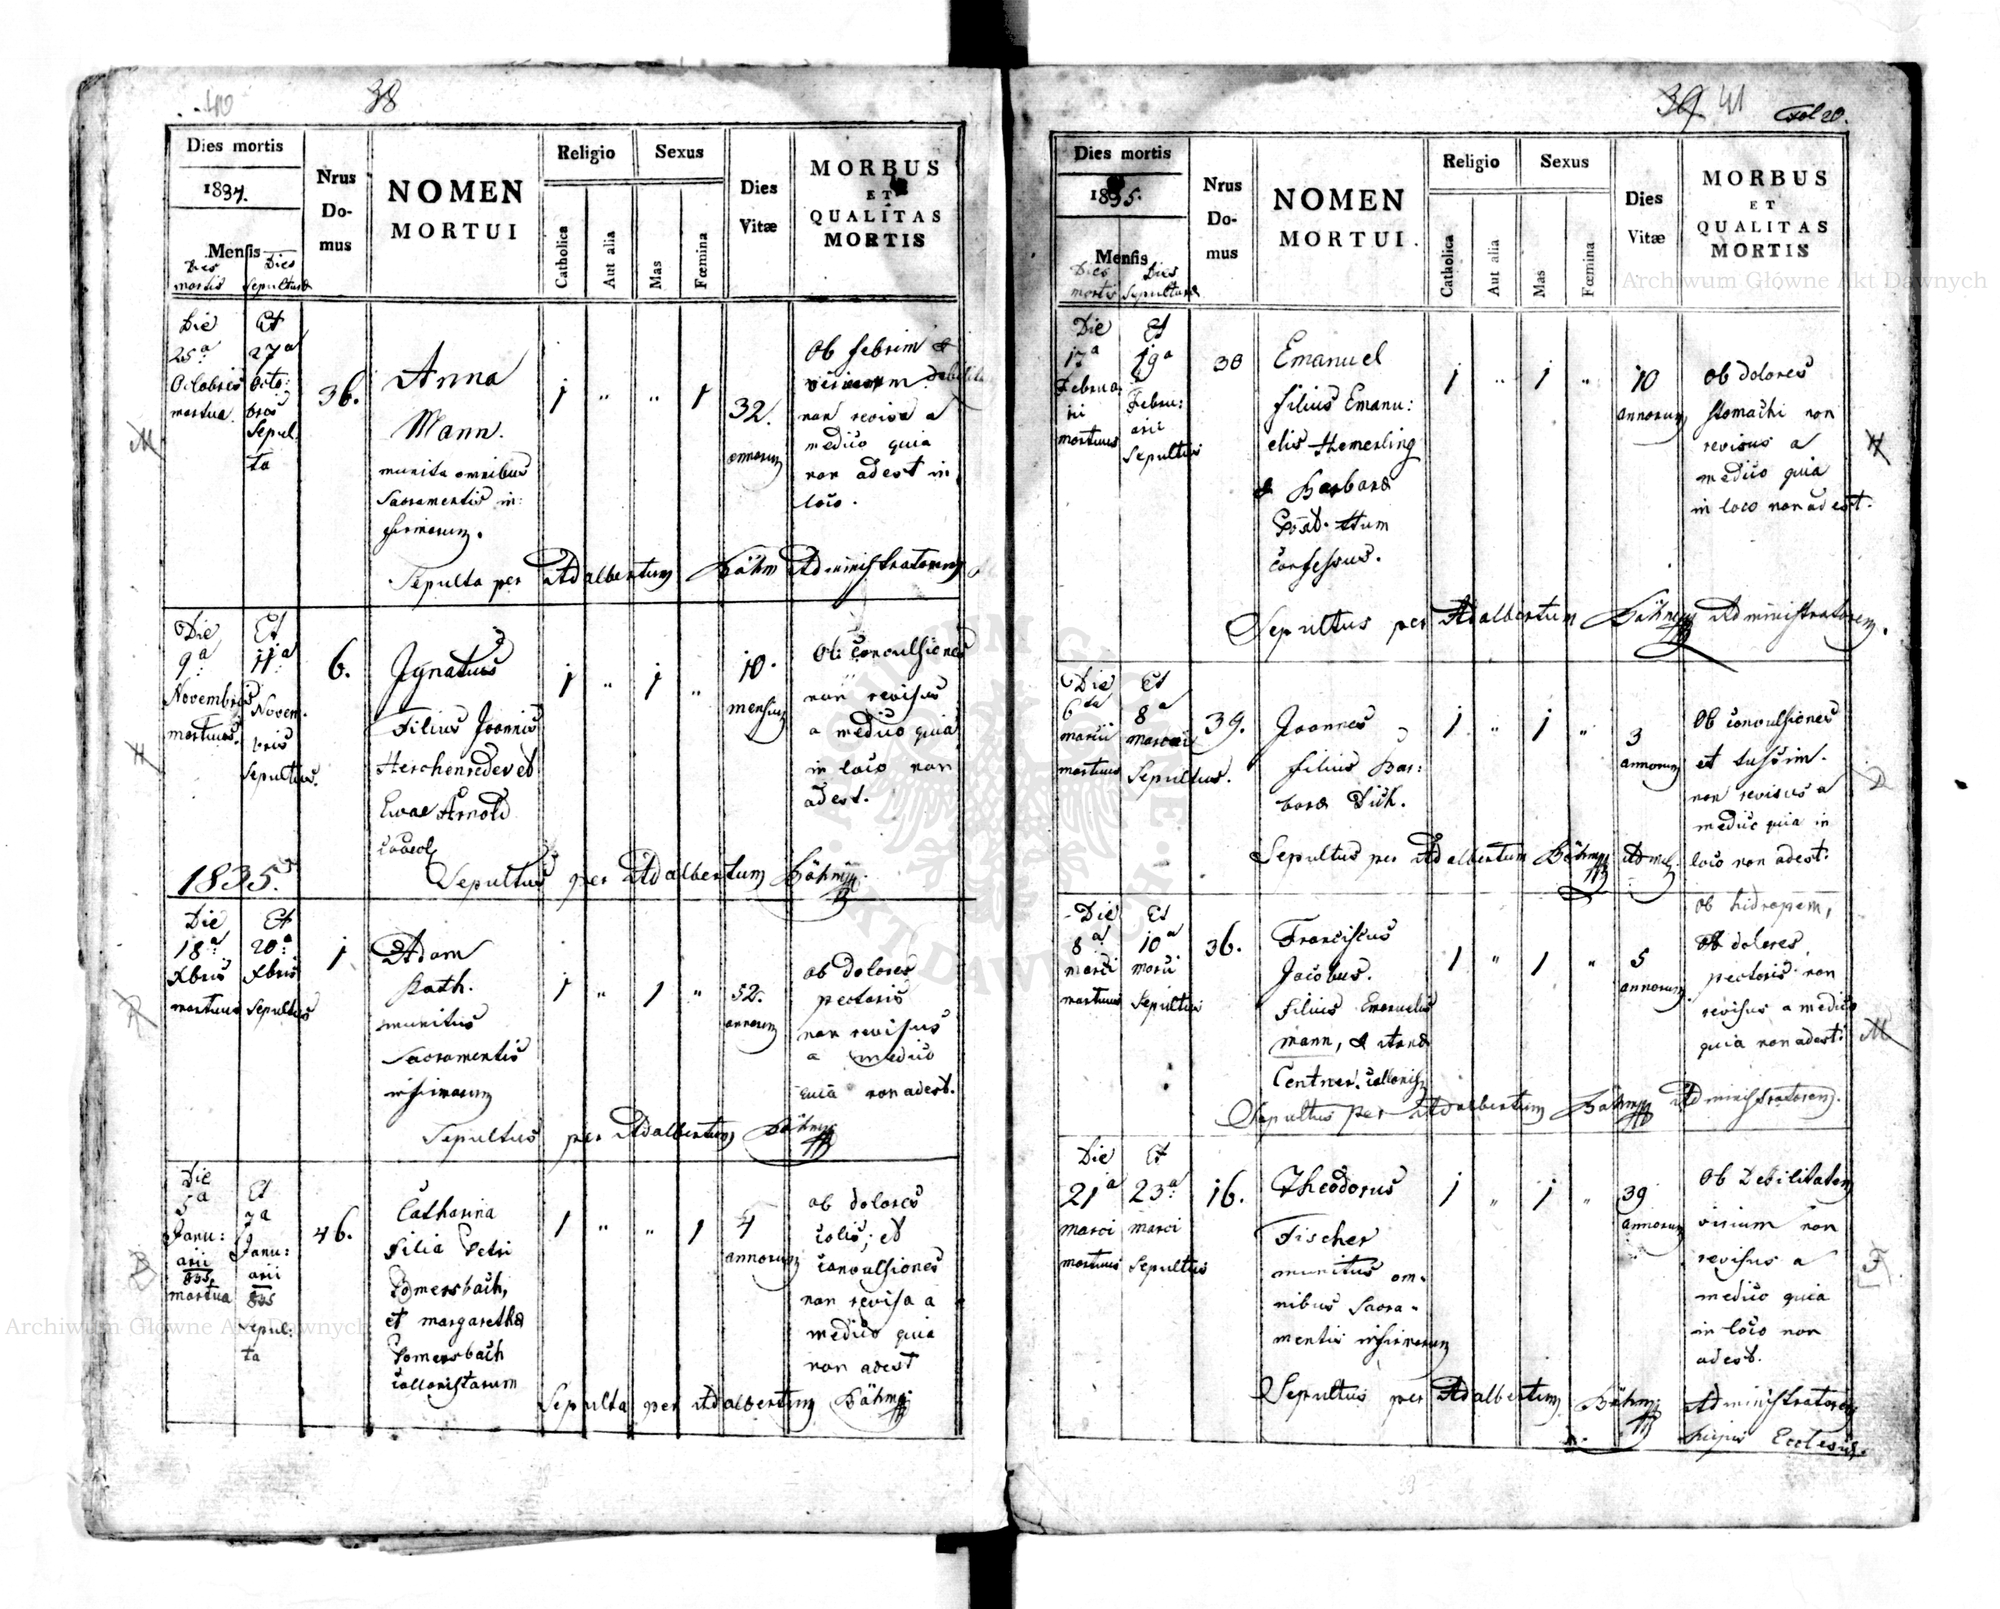 40
38
Dies mortis
1834.
Mensis
Dies mortis
Dies Sepulturæ
Nrus Domus
NOMEN
MORTUI
Religio
Catholica
Aut alia
Sexus
Mas
Fœmina
Dies
Vitæ
MORBUS
ET
QUALITAS
MORTIS
Die
25a
Octobris
mortua
Et
27a
Octo:
bris
Sepul.
ta
36.
Anna
Mann.
munita omnibus
Sacramentis in:
firmorum.
1 " " 1
32.
annorum
Ob febrim &
non revisa a
medico quia
non adest in
loco.
Sepulta per Adalbertum Böhm Administratorem
M
Die
9a
Novembris
mortuus.
Et
11a
Novem.
bris
Sepultus.
6.
Ignatius
Filius Joannis
Herchenreder et
Evae Arnold
1 " 1 "
10.
mensium
Ob convulsiones
non revisus
a medico quia
in loco non
adest.
Sepultus per Adalbertum Böhm
H
1835.
Die
18a
Xbris
mortuus
Et
20a
Xbris
Sepultus
1
Adam
Rath.
munitus
Sacramentis
infirmorum
1 " 1 "
52.
annorum
ob dolores
pectoris
non revisus
a medico
quia non adest.
Sepultus per Adalbertum Böhm
R
Die
5a
Janu:
arii
835
mortua
Et
7a
Janu:
arii
835
Sepul:
ta
46.
Catharina
Filia Petri
Pomersbach,
et margaretha
Pomersbach
collonistarum
1 " " 1
4
annorum
ob dolores
colis; et
convulsiones
non revisa a
medico quia
non adest
Sepulta per Adalbertum Böhm
B
39 41
Fol 20.
Dies mortis
1835.
Mensis
Dies mortis
Dies Sepulturæ
Nrus Domus
NOMEN
MORTUI.
Religio
Catholica
Aut alia
Sexus
Mas
Fœmina
Dies
Vitæ
MORBUS
ET
QUALITAS
MORTIS
Die
17a
Februa
rii
mortuus
Et
19a
Febru:
arii
Sepultus
30
Emanuel
filius Emanu:
elis Hemerling
& Barbara
confessus.
1 " 1 "
10
annorum
ob dolores
stomachi non
revisus a
medico quia
in loco non adest.
Sepultus per Adalbertum Böhm Administratorem.
H
Die
6ta
marcii
mortuus
Et
8a
marcii
Sepultus.
39.
Joannes
filius Bar:
bara Dich.
1 " 1 "
3
annorum
Ob convulsiones
et tussim.
non revisus a
medico quia in
loco non adest.
Sepultus per Adalbertum Böhm Adm.
D
Die
8a
marci
mortuus
Et
10a
marci
Sepultus
36.
Franciscus
Jacobus.
filius Emanuelis
mann, & Anna
Centner.
1 " 1 "
5
annorum
ob hidropem,
Ob dolores
pectoris non
revisus a medico
quia non adest.
Sepultus per Adalbertum Böhm Administratorem.
M
Die
21a
marci
mortuus
Et
23a
marci
Sepultus
16.
Theodorus
Fischer
munitus om-
nibus Sacra-
mentis infirmorum
1 " 1 "
39
annorum
Ob Debilitatem
virium non
revisus a
medico quia
in loco non
adest.
Sepultus per Adalbertum Böhm Administratorem
hujus Ecclesiæ.
F
Archiwum Główne Akt Dawnych
Archiwum Główne Akt Dawnych
ARCHIWUM GŁÓWNE AKT DAWNYCH